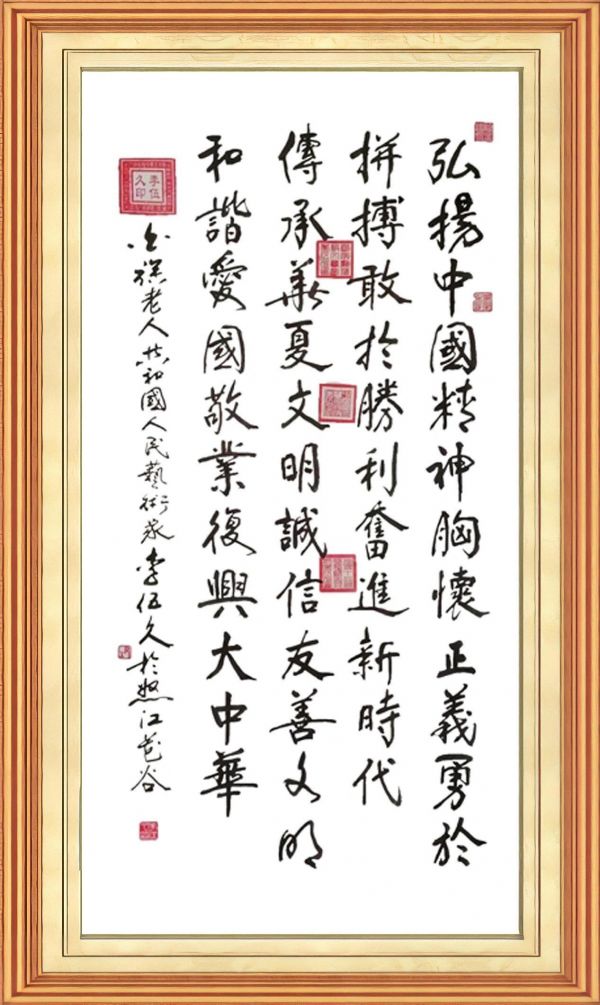 弘揚中國精神胸懷正義勇於
拼搏敢於勝利奮進新時代
傳承華夏文明誠信友善文明
和諧愛國敬業復興大中華
老人共和國人民藝術家李伍久於怒江芭谷
李伍久印